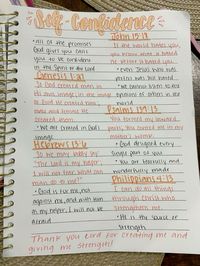 Self-Confidence
- All of the promises
God gives you calls
you to be confident
in the Spirit of the Lord
Genesis 1:27
So God created man in
His own image, in the image
of God he created him;
male and female He
created them.
- We are created in God's
image
Hebrews 13:6
So we may boldly say:
"The Lord is my helper;
I will not fear. What can
man do to me?"
- God is for me, not
against me, and with him
as my helper, I will not be
afraid
John 15:18
If the world hates you,
you know that it hated
me before it hated you.
- even Jesus who was
was hated
- We cannot listen to the
opinions of others in the
world
Psalms 139:13
You formed my inward
parts, You covered me in my
mother's womb.
- God designed every
single part of you
- You are fearfully and
wonderfully made
Philippians 4:13
I can do all things
through Christ who
strengthens me.
- He is my source of
strength
Thank you Lord for creating me and
giving me strength!